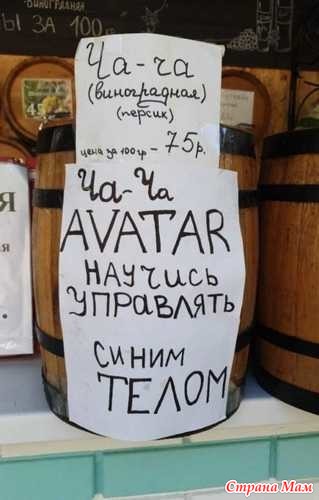 ВИНОГРАДНАЯ
Ы ЗА 100
Ча-ча
(виноградная)
(персик)
цена за 100 гр - 75 р.
Ча-Ча
AVATAR
НАУЧИСЬ
УПРАВЛЯТЬ
СИНИМ
ТЕЛОМ
Страна Мам